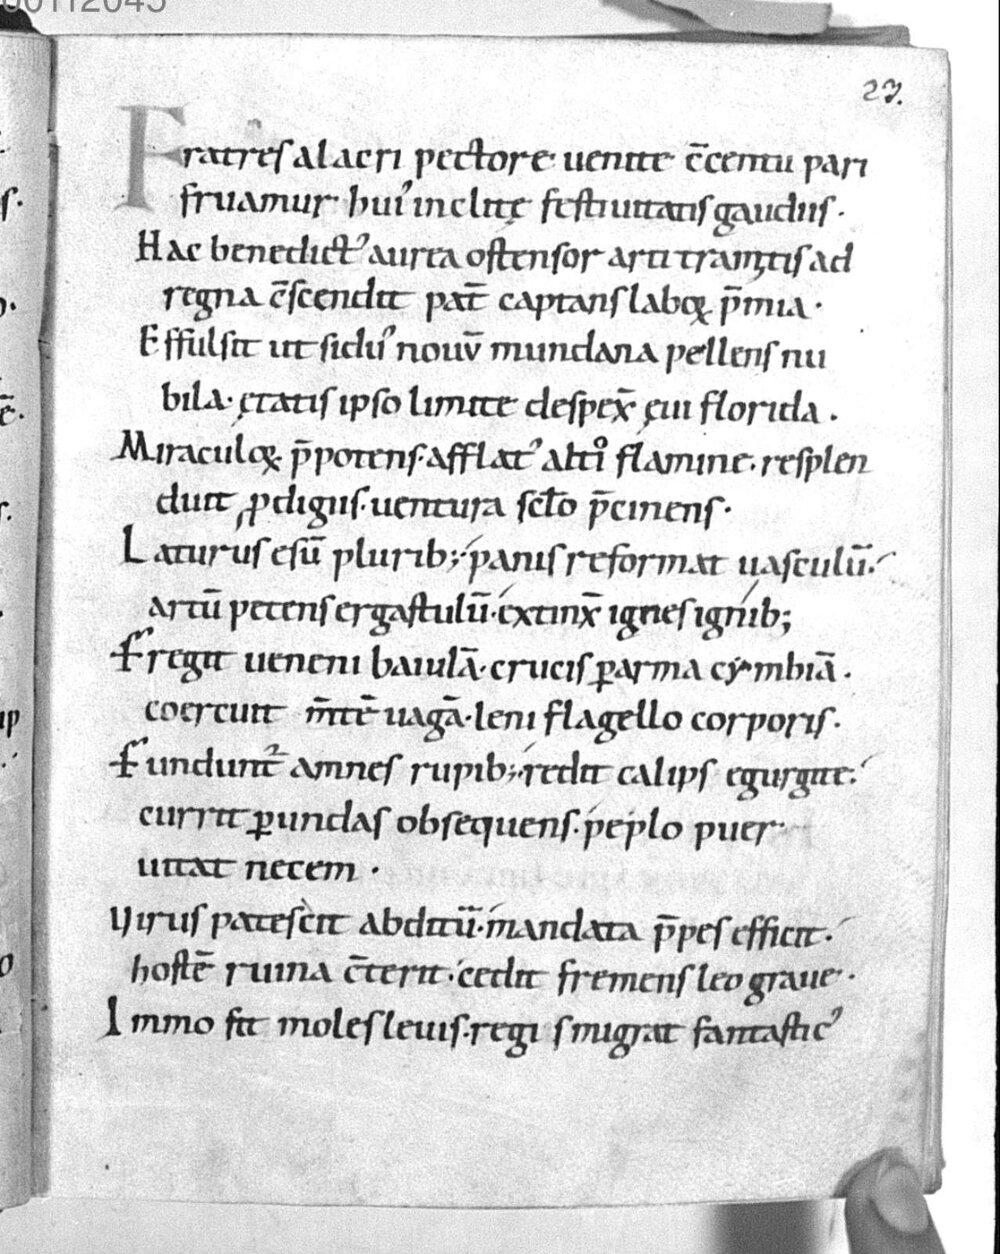 00112045
27.
Fratres alacri pectore uenite c̄centu pari
fruamur hui᾽ inclitę festiuitatis gaudiis.
Hac benedict᾽ aurea ostensor arti tramitis ad
regna c̄scendit pat̄ captans laboꝝ p̄mia.
Effulsit ut sidu᾽ nouū mundana pellens nu
bila. ętatis ipso limite despex̄ ęui florida.
Miraculoꝝ p̄potens. afflat᾽ alti flamine. resplen
duit ꝓdigiis. uentura sc̄lo p̄cinens.
Laturus esū plurib; panis reformat uasculū.
artū petens ergastulū. extinx̄ ignes ignib;
Fregit ueneni baiulā. crucis ꝑ arma cymbiā.
coercuit m̄tē uagā. leni flagello corporis.
Fundunt᾽ amnes rupib;. redit calips egurgite.
currit ꝑ undas obsequens. peplo puer
uitat necem.
Virus patescit abditū. mandata p̄pes efficit.
hostē ruina c̄terit. cedit fremens leo graue.
Immo fit moles leuis. regi smigrat fantastic᾽